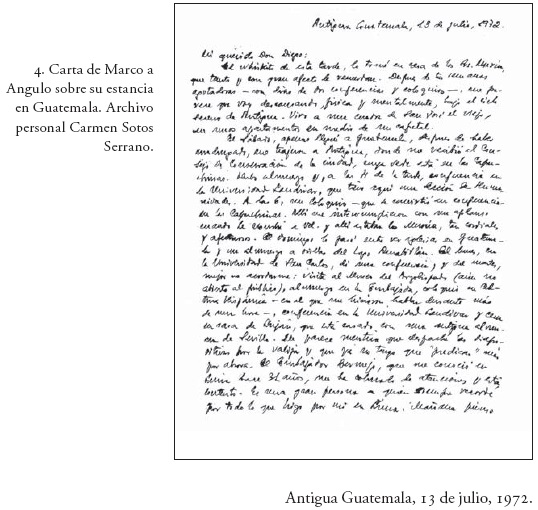 4. Carta de Marco a
Angulo sobre su estancia
en Guatemala. Archivo
personal Carmen Sotos
Serrano.
Antigua Guatemala, 13 de julio, 1972.
Mi querido Don Diego:
El whiskit de esta tarde, lo tomé en casa de los Srs.
que tanto y con gran afecto le recuerdan. Después de tres semanas
agotadoras – con días de dos conferencias y coloquios –, me
parece que voy descansando, física y mentalmente, bajo el cielo
sereno de Antigua. Vivo a una cuadra de San José el viejo,
en unos apartamentos en medio de un cafetal.
El sábado, apenas llegué a Guatemala, después de haber
madrugado, me trajeron a Antigua, donde me recibió el Con-
sejo de Conservación de la ciudad, cuya sede está en las Capu-
chinas. Hubo almuerzo y, a las 4 de la tarde, conferencia en
la Universidad Landívar, que tiene aquí una sección de Huma-
nidades. A las 6, un coloquio – que se convirtió en conferencia –
en las Capuchinas. Allí me interrumpieron con un aplauso
cuando le nombré a Vd. y allí estaban los
y afectuosos. El domingo lo pasé entre ver iglesias en Guatema-
la y un almuerzo a orillas del lago Amatitlán. El lunes, en
la Universidad de San Carlos, di una conferencia, y el martes,
mejor no acordarme: visita al Museo del Arzobispado (aún no
abierto al público), almuerzo en la Embajada, coloquio en Cul-
tura Hispánica – en el que me hicieron hablar durante más
de una hora –, conferencia en la Universidad Landívar y cena
en casa de Luján, que está casado con una antigua alum-
na de Sevilla. Me parece mentira que despaché las diapo-
sitivas por la valija y que ya no tengo que "predicar" más
por ahora. El Embajador Bermejo, que me conoció en
hace 31 años, me ha colmado de atenciones y está
contento. Es una gran persona a quien siempre recordé
por todo lo que hizo por mí en Mañana pienso
Antigua Guatemala, 13 de julio, 1972.